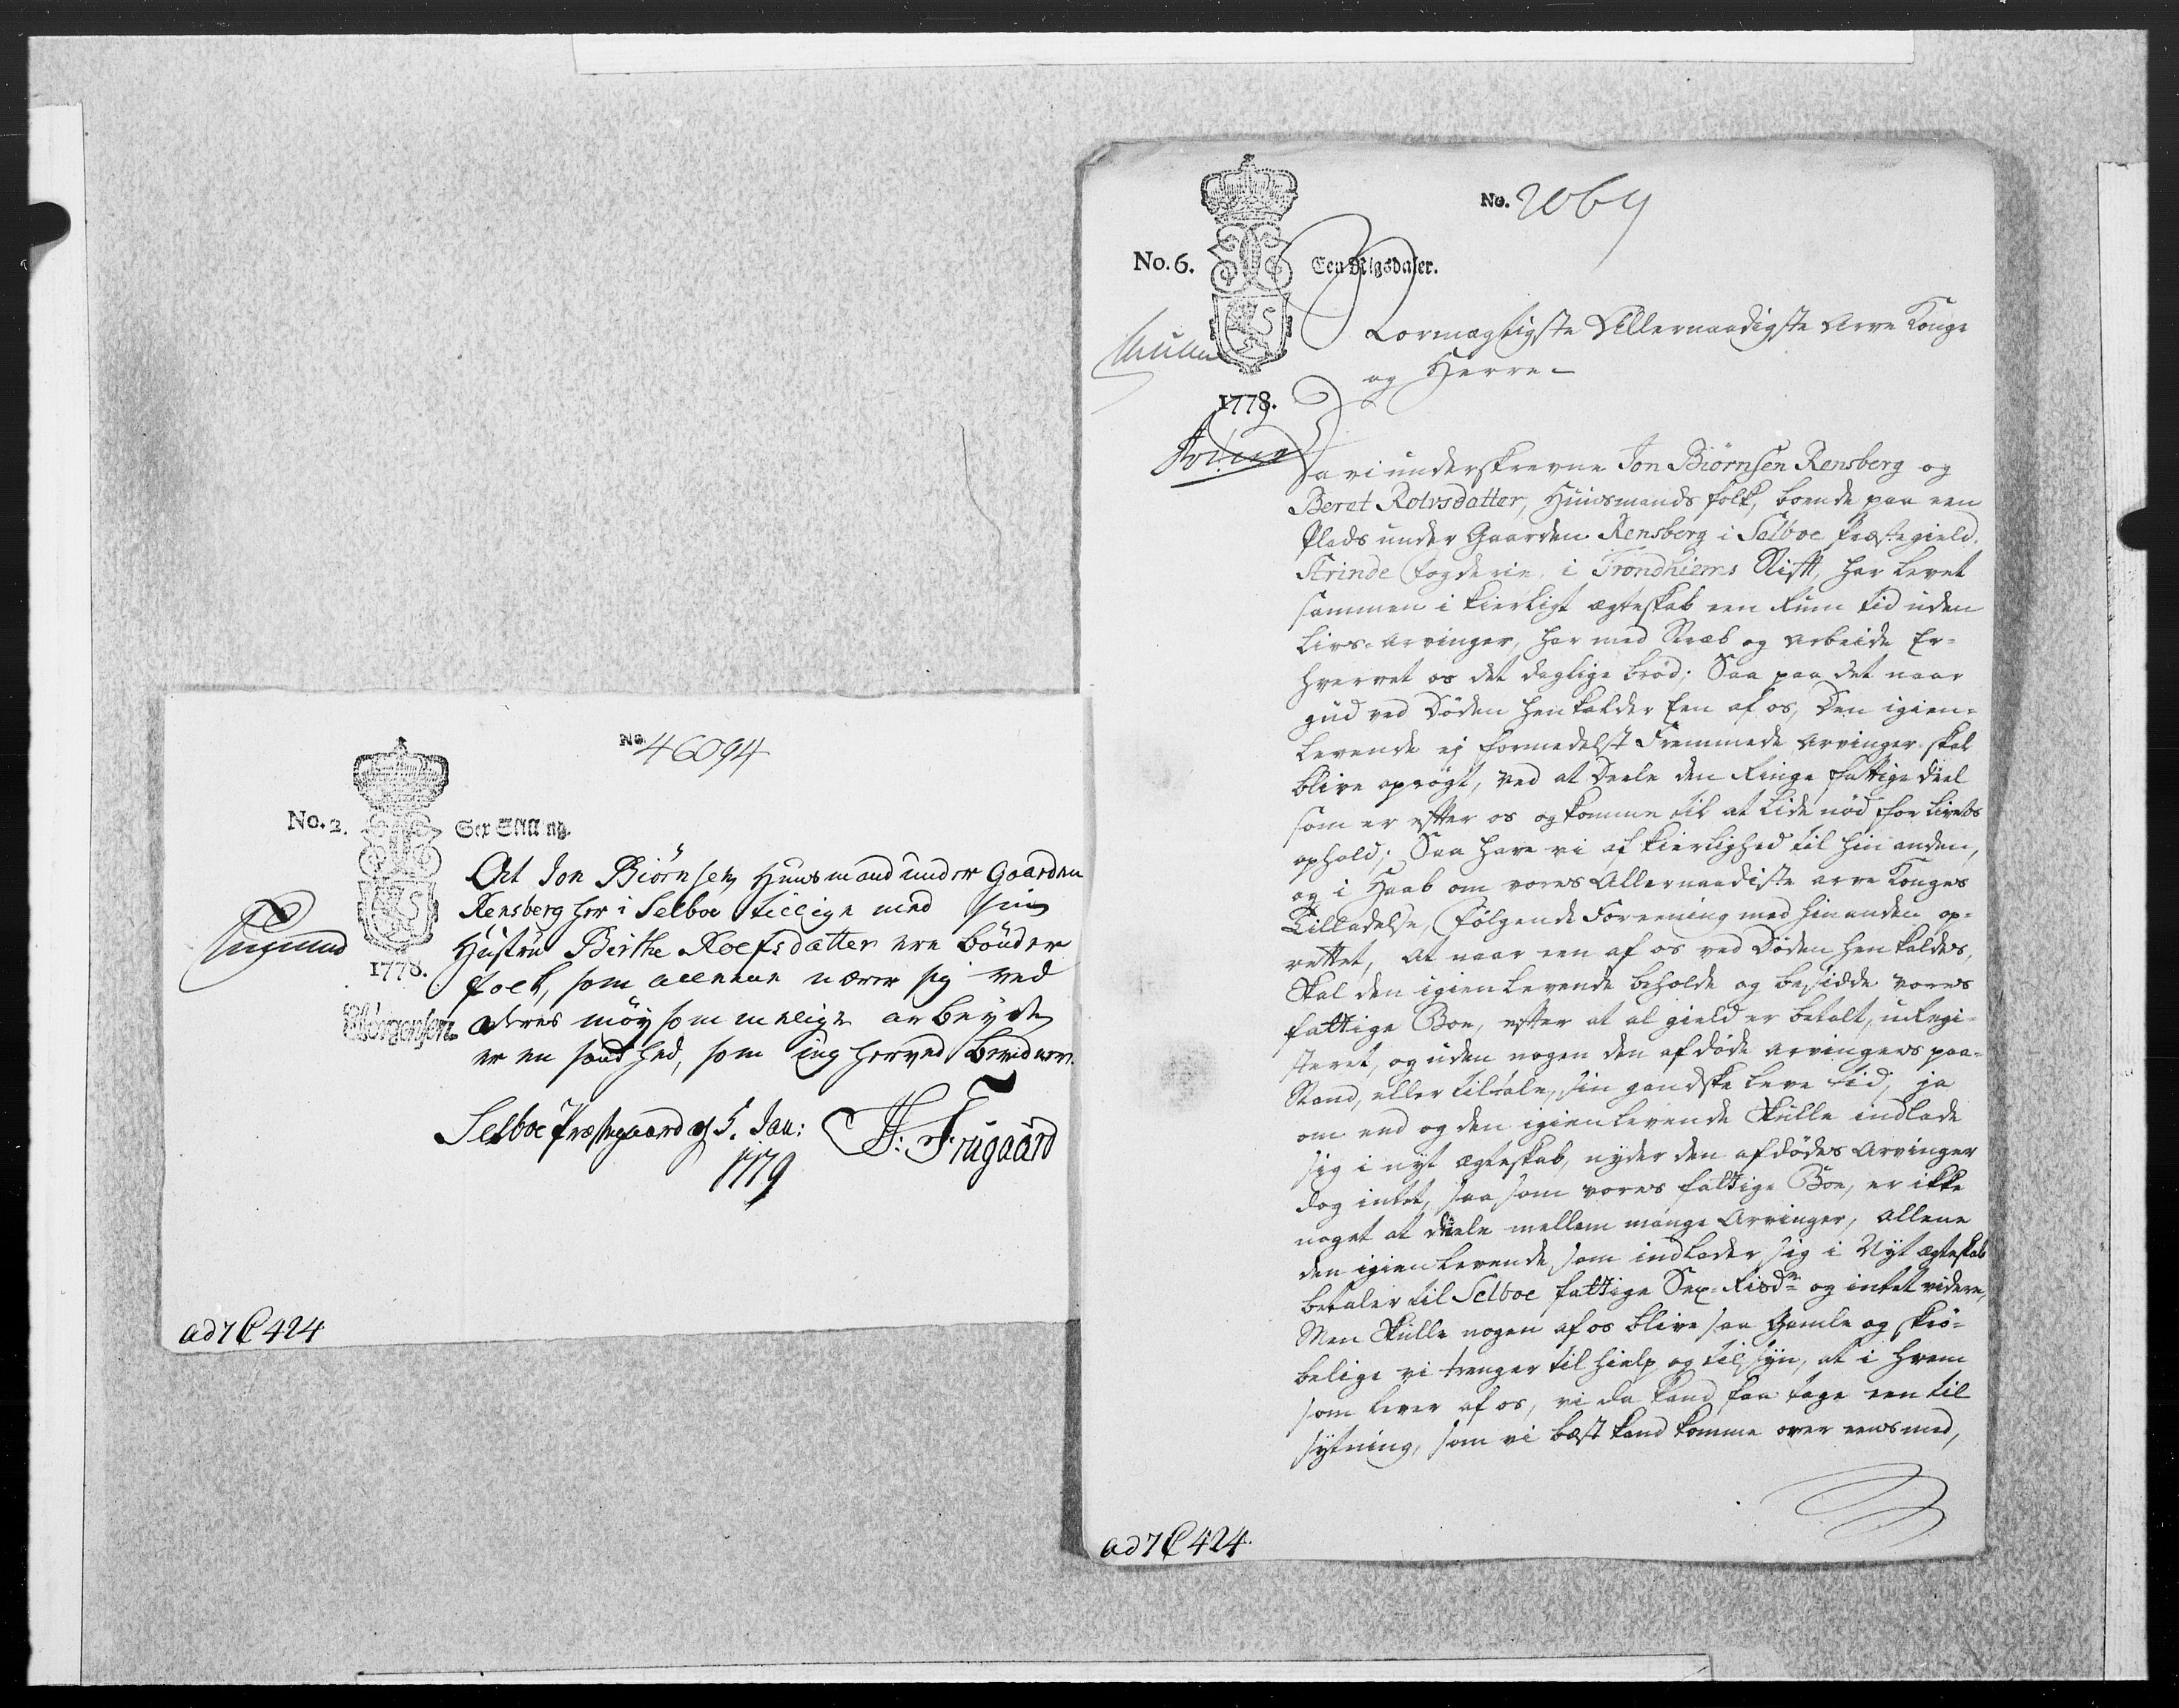 No. 46094
No. 2.
Sex Skilling.
1778.
At Jon Biörnsen Huusmand under Gaarden
Rensberg her i Selboe tillige med sin
Hustrue Birthe Roefsdatter ere bönder
folk, som alleene nærer sig ved
deres möysommelige arbeyde
er en sandhed, som jeg herved bevidner.
Selboe Præstegaard d 5. Jan:
1779
H: Frugaard
ad 7 C 424
No. 2064
No. 6.
Een Rigsdaler.
1778.
Stormægtigste Allernaadigste Arve Konge
og Herre
Da vi underskrevne Jon Biörnsen Rensberg og
Beret Rolvsdatter, Huusmands folk, boende paa een
Plads under Gaarden Rensberg i Selboe Præstegield.
Strinde Fogderie, i Trondhiems Stift, har levet
sammen i kierligt ægteskab een Rum tid uden
Livs-arvinger, har med Stræb og arbeide Er-
hvervet os det daglige bröd; Saa paa det naar
gud ved Döden henkalder Een af os, Den igien-
levende ej formedelst Fremmede arvinger skal
blive oprögt, ved at Deele den Ringe fattige Deel
som er efter os og komme til at lide nöd for livets
ophold; Saa have vi af kierlighed til hin anden,
og i Haab om vores Allernaadiste arve Konges
Tilladelse, Fölgende Foreening med hin anden op-
rettet, At naar een af os ved Döden henkaldes,
Skal den igienlevende beholde og besidde vores
fattige Boe, efter at al gield er betalt, uRegi-
steret, og uden nogen den afdöde arvingers paa-
Stand, eller tiltale, sin gandske leve tid, ja
om end og den igienlevende Skulle indlade
sig i nyt ægteskab, nyder den afdödes Arvinger
dog intet, saa som vores fattige Boe, er ikke
noget at deele mellem mange Arvinger, allene
den igienlevende, som indlader sig i Nyt ægteskab
betaler til Selboe fattige Sex Risdr og intet videre,
Men Skulle nogen af os blive saa Gamle og skrö-
belige vi trenger til hielp og tilsyn, at i hvem
som lever af os, vi da kand faa tage een til
sytning, som vi bæst kand komme over eens med,
ad 7 C 424.